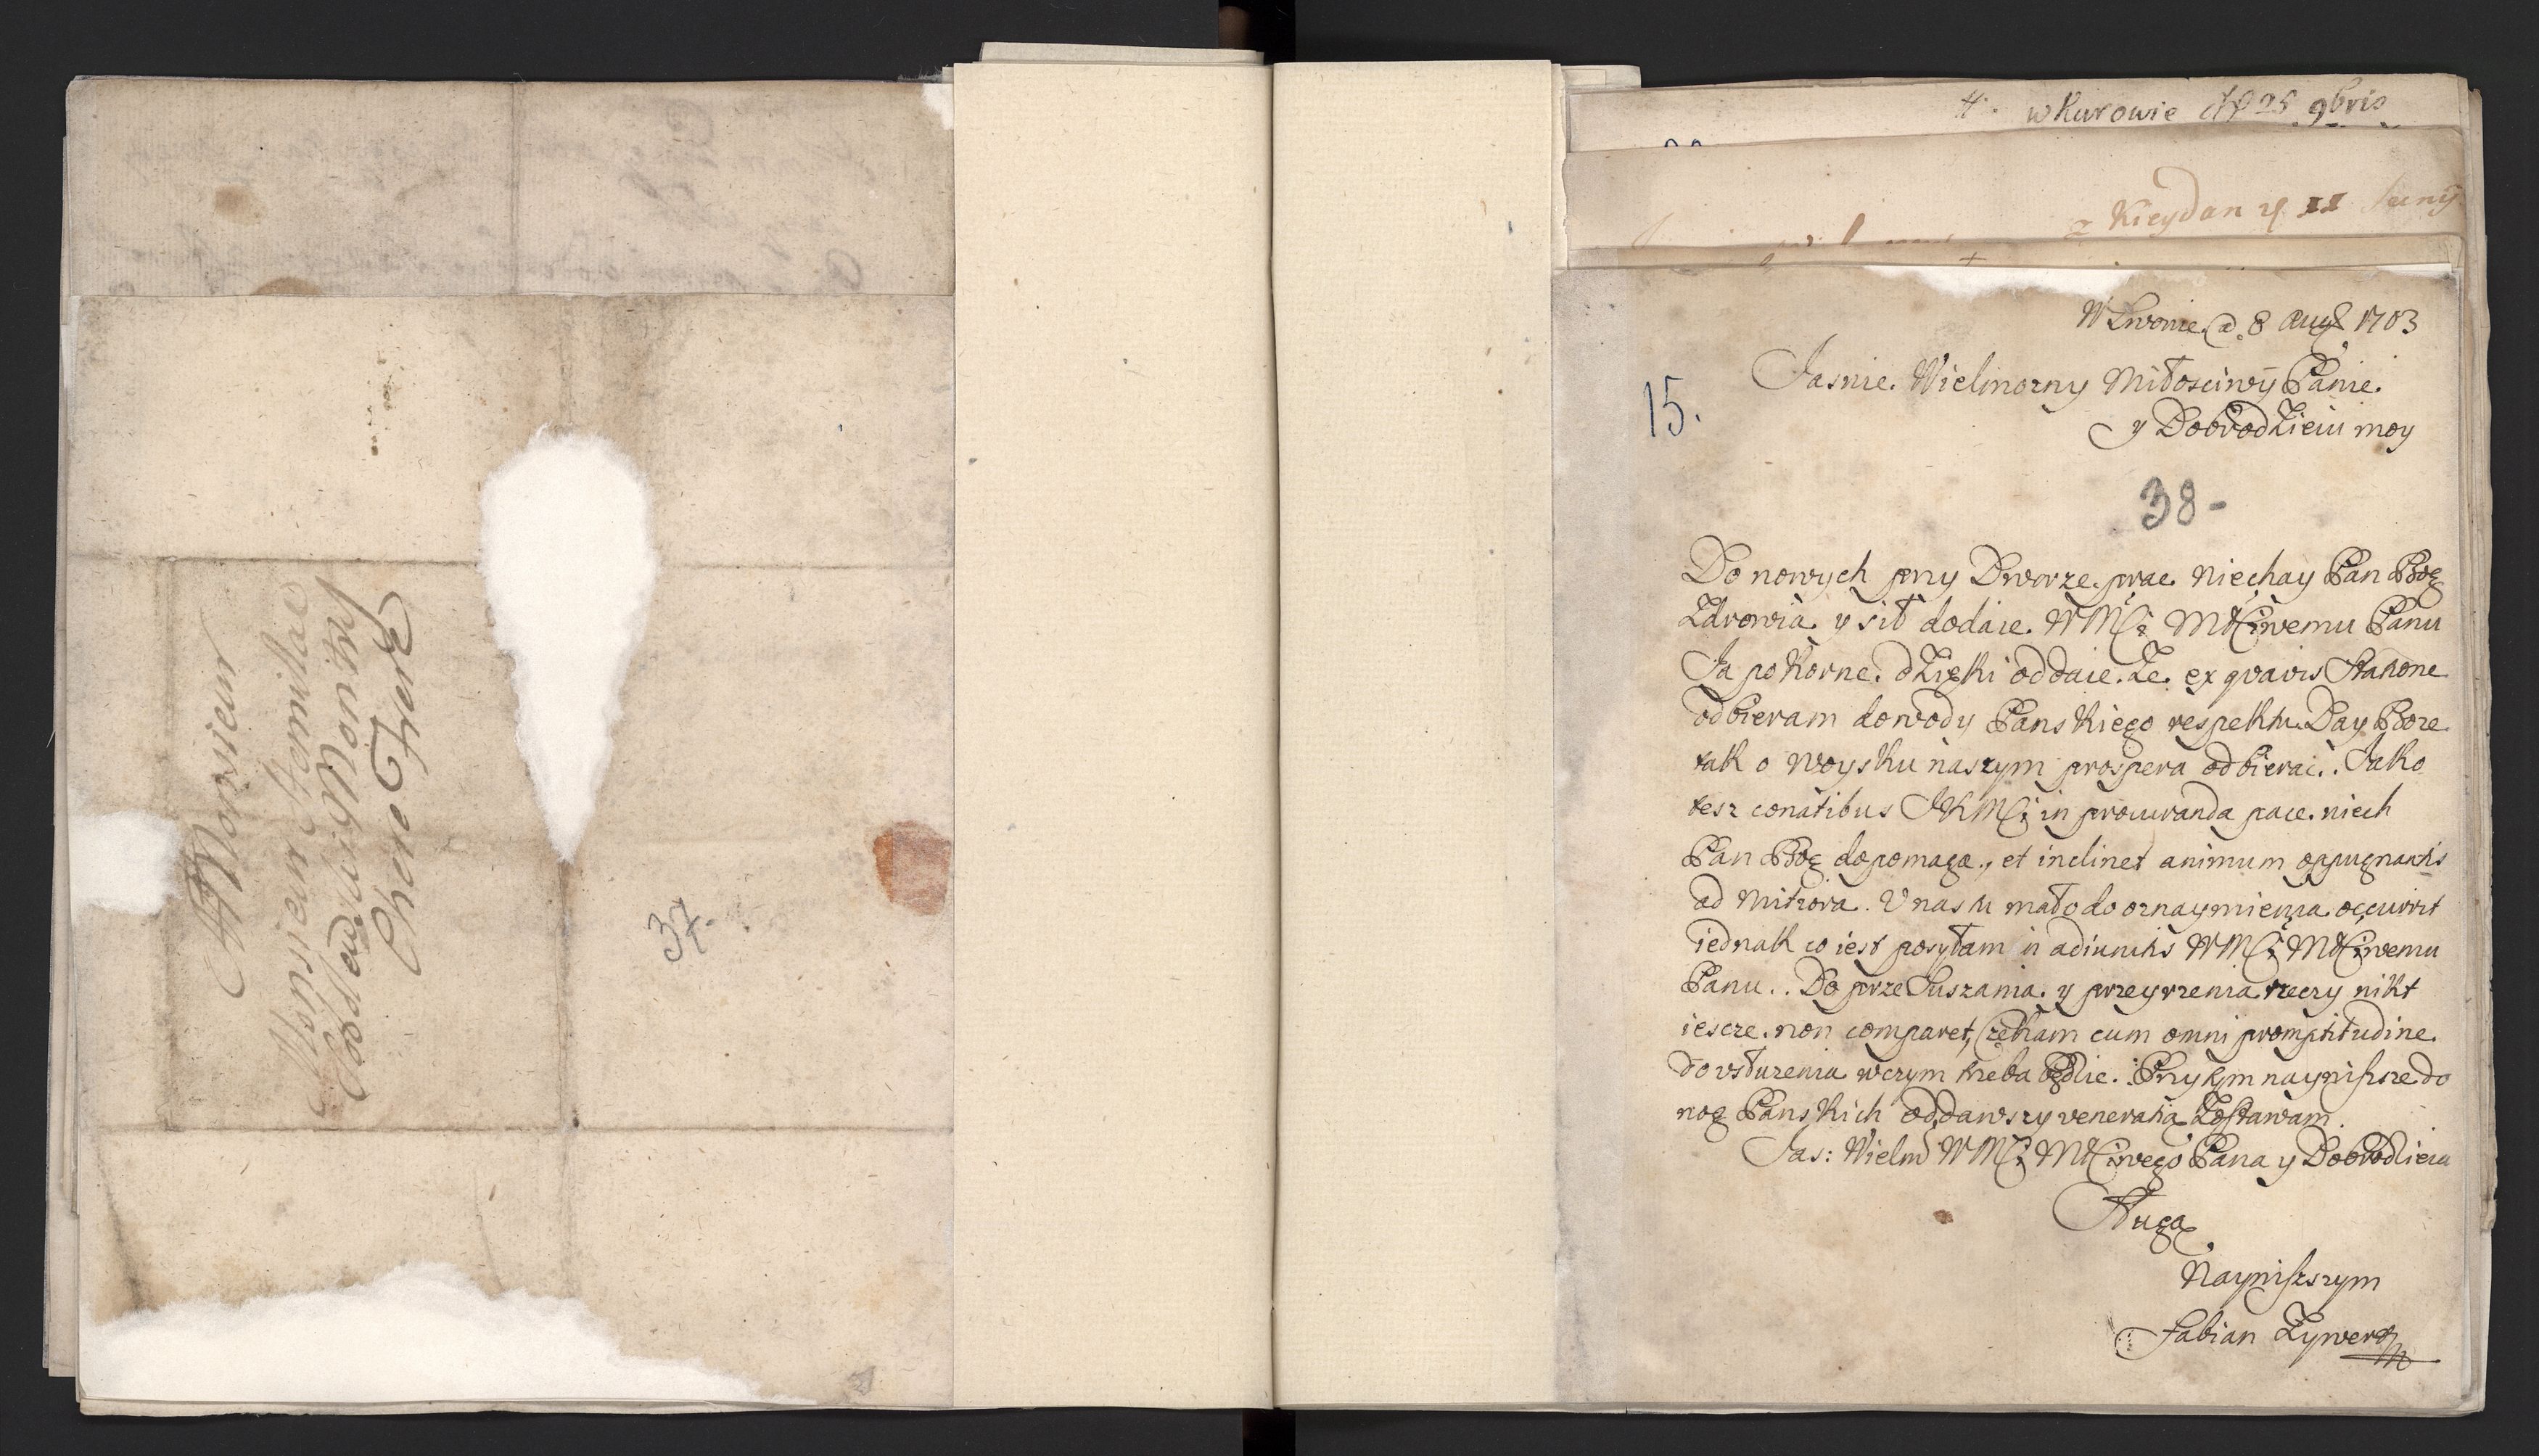 A Monsieur
Monsieur
Mon tres
Chere Frere
37.
4.
w Kurowie d 25 9bris
z Kieydan 11 Juny
W Lwowie d. 8 Augu 1703
Jasnie Wielmozny Miłosciwy Panie
y Dobrodzieiu moy
15.
38-
Do nowych przy Dworze prac niechay Pan Bog
Zdrowia y sił dodaie WMCi MCiwemu Panu
Ja pokorne dzięki oddaie. Ze ex qvavis Stahone
odbieram dowody Panskiego respektu. Day Boze
tak o woysku naszym prospera odbierac.. Jako
tesz conatibus JKMCi in procuranda pace. niech
Pan Bog dopomaga, et inclinet animum oppugnantis
ad mitiora. U nas tu mało do oznaymienia occurrit
iednak co iest posyłam in adiunctis WMCi MCiwemu
Panu.. Do przesłuszania y przeyrzenia rzeczy nikt
iescze non comparet, czekam cum omni promptitudine
do usłuzenia w czym trzeba będzie. Przytym nayniszsze do
nog Panskich oddawszy veneratią Zostawam.
Jas: Wielm WMCi MCiwego Pana y Dobrodzieia
Sługą
Nayniszszym
Fabian Zywert